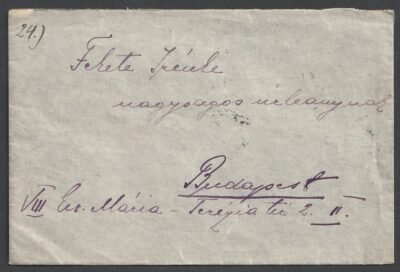 24.)
Fekete Irénke
nagyságos úrleánynak
Budapest
VIII Ker. Mária - Terézia tér 2. II.